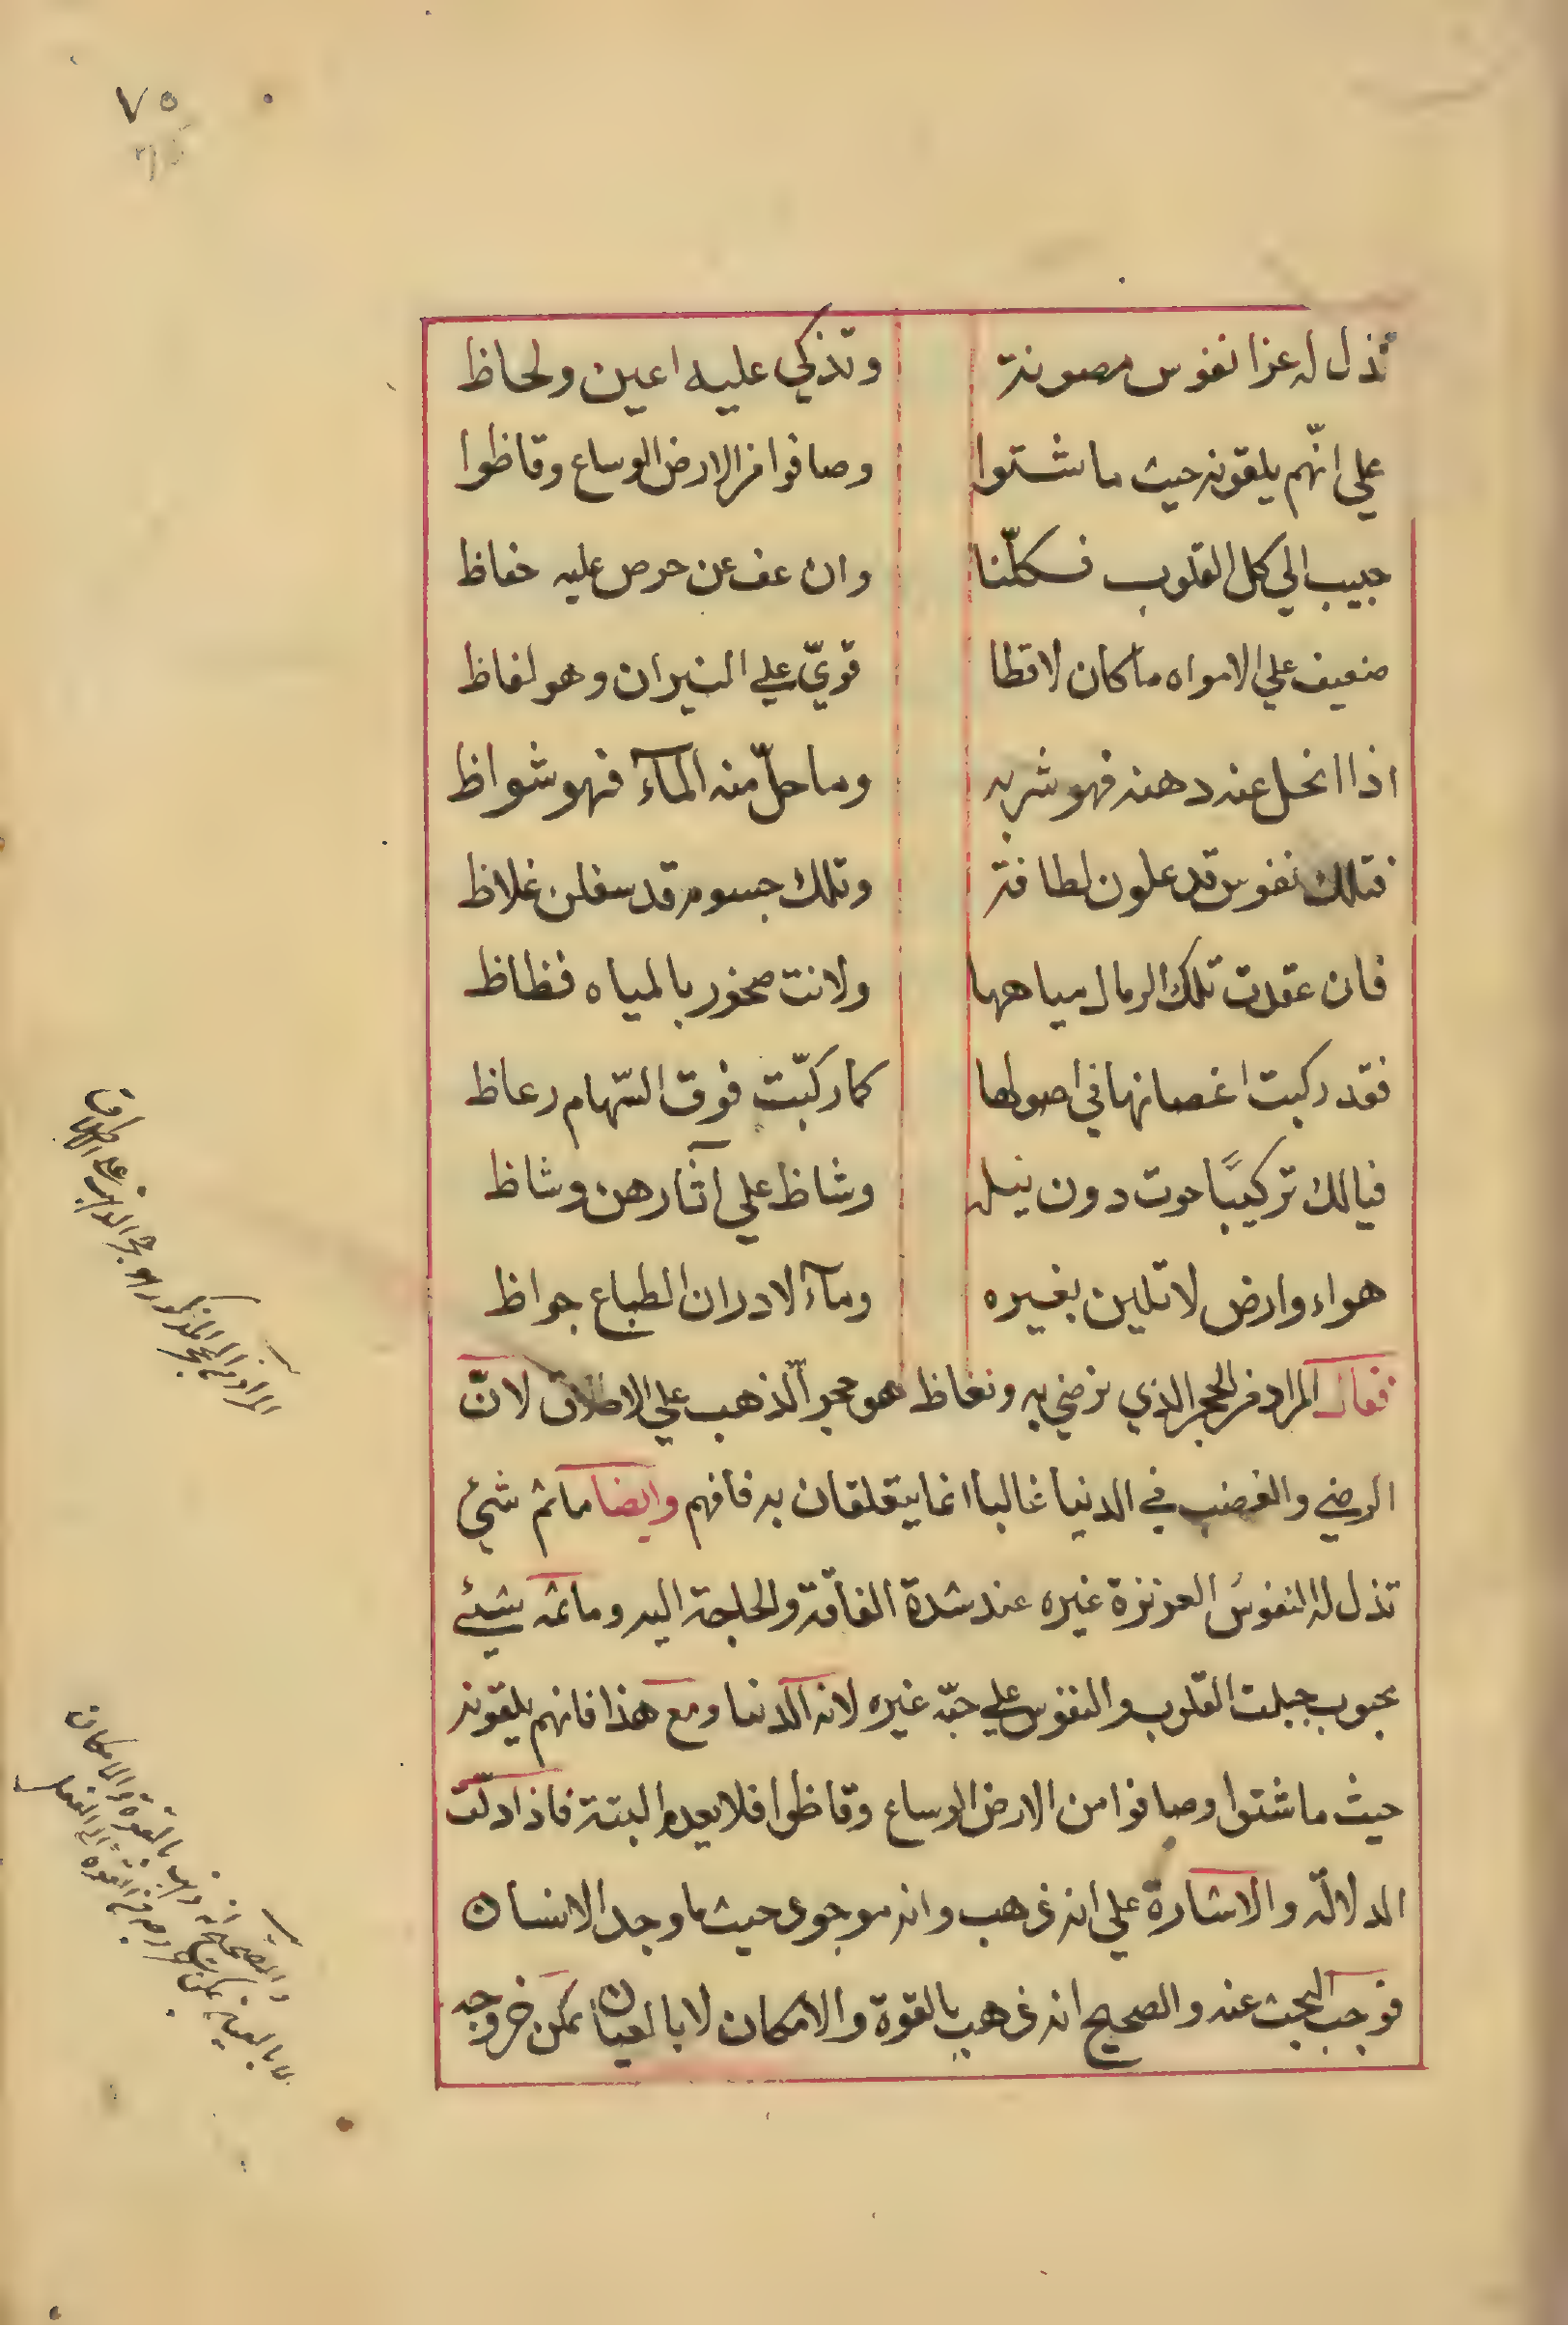 ٧٥
تذل له عزا نفوس مصونة وتذكي عليه اعين ولحاظ
علي انّهم يلقونه حيث ما شتوا وصافوا من الارض الوساع وقاظوا
حبيب الي كل القلوب فكلّنا وان عف عن حرص عليه حفاظ
ضعيف علي الامواه ما كان لاقطا قويّ علي النيران وهو لفاظ
اذا انحل عنه دهنه فهو شربه وما حلّ منه المآء فهو شواظ
فتلك نفوس قد علون لطافة وتلك جسوم قد سفلن غلاظ
فان عقدت تلك الرمال مياهها ولانت صخور بالمياه فظاظ
فقد ركبت اغصانها في اصولها كما ركبّت فوق السّهام رعاظ
فيالك تركيبًا حوت دون نيله وشاظ علي آثارهن وشاظ
هواء وارض لا تلين بغيره ومآء لادران الطباع جواظ
فقال المراد من الحجر الذي نرضي به ونغاظ هو حجر الذهب علي الاطلاق لانّ
الرضي والغضب في الدنيا غالبا انما يتعلقان به فافهم وايضا ما ثم شئ
تذل له النفوس العزيزة غيره عند شدة الفاقة والحاجة اليه وما ثمه شئ
محبوب جبلت القلوب والنفوس علي حبّه غيره لانه الدنيا ومع هذا فانهم يلقونه
حيث ما شتوا وصافوا من الارض الوساع وقاظوا فلا يعدوا البتة فاذا دلّت
الدلالة والاشارة علي انه ذهب وانه موجود حيث ما وجد الانسان
فوجب البحث عنه والصحيح انه ذهب بالقوة والامكان لا بالعيان يمكن خروجه
المراد من الحجر المذكور هو حجر الذهب علي الاطلاق
والصحيح انه ذهب بالقوة والامكان
لا بالعيان يمكن خروجه من القوة الي الفعل